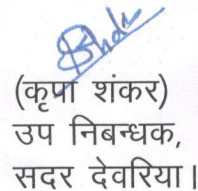 (कृपा शंकर)
उप निबन्धक,
सदर देवरिया।